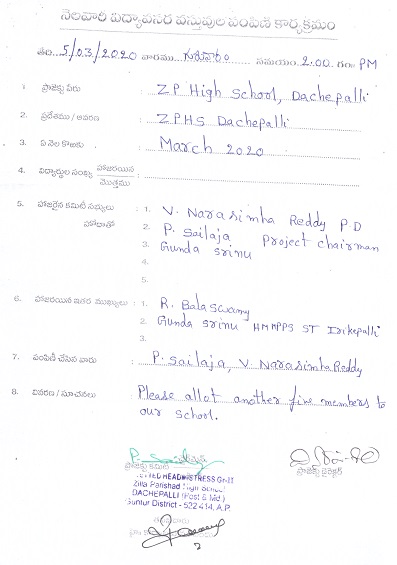 నెలవారి విద్యావసర వస్తువుల పంపిణీ కార్యక్రమం
తేది. 5/03/2020 వారము గురువారం సమయం. 2.00 గం॥ PM
1. ప్రాజెక్టు పేరు : ZP High School, Dachepalli
2. ప్రదేశము / ఆవరణ : ZPHS Dachepalli
3. ఏ నెల కొఱకు : March 2020
4. విద్యార్ధుల సంఖ్య హాజరయిన / మొత్తము :
5. హాజరైన కమిటీ సభ్యులు : 1. V. Narasimha Reddy P.D
హోదాతో 2. P. Sailaja Project chairman
3. Gunda srinu
4.
5.
6. హాజరయిన ఇతర ముఖ్యులు : 1. R. Balaswamy
2. Gunda srinu HMMPPS ST Irikepalli
3.
7. పంపిణీ చేసిన వారు : P. Sailaja, V Narasimha Reddy
8. వివరణ / సూచనలు : Please allot another five members to
our school.
ప్రాజెక్టు కమిటీ
ప్రాజెక్ట్ డైరెక్టర్
HEADMISTRESS Gr-II
Zilla Parishad High School
DACHEPALLI (Post & Md)
Guntur District - 522 414, A.P.